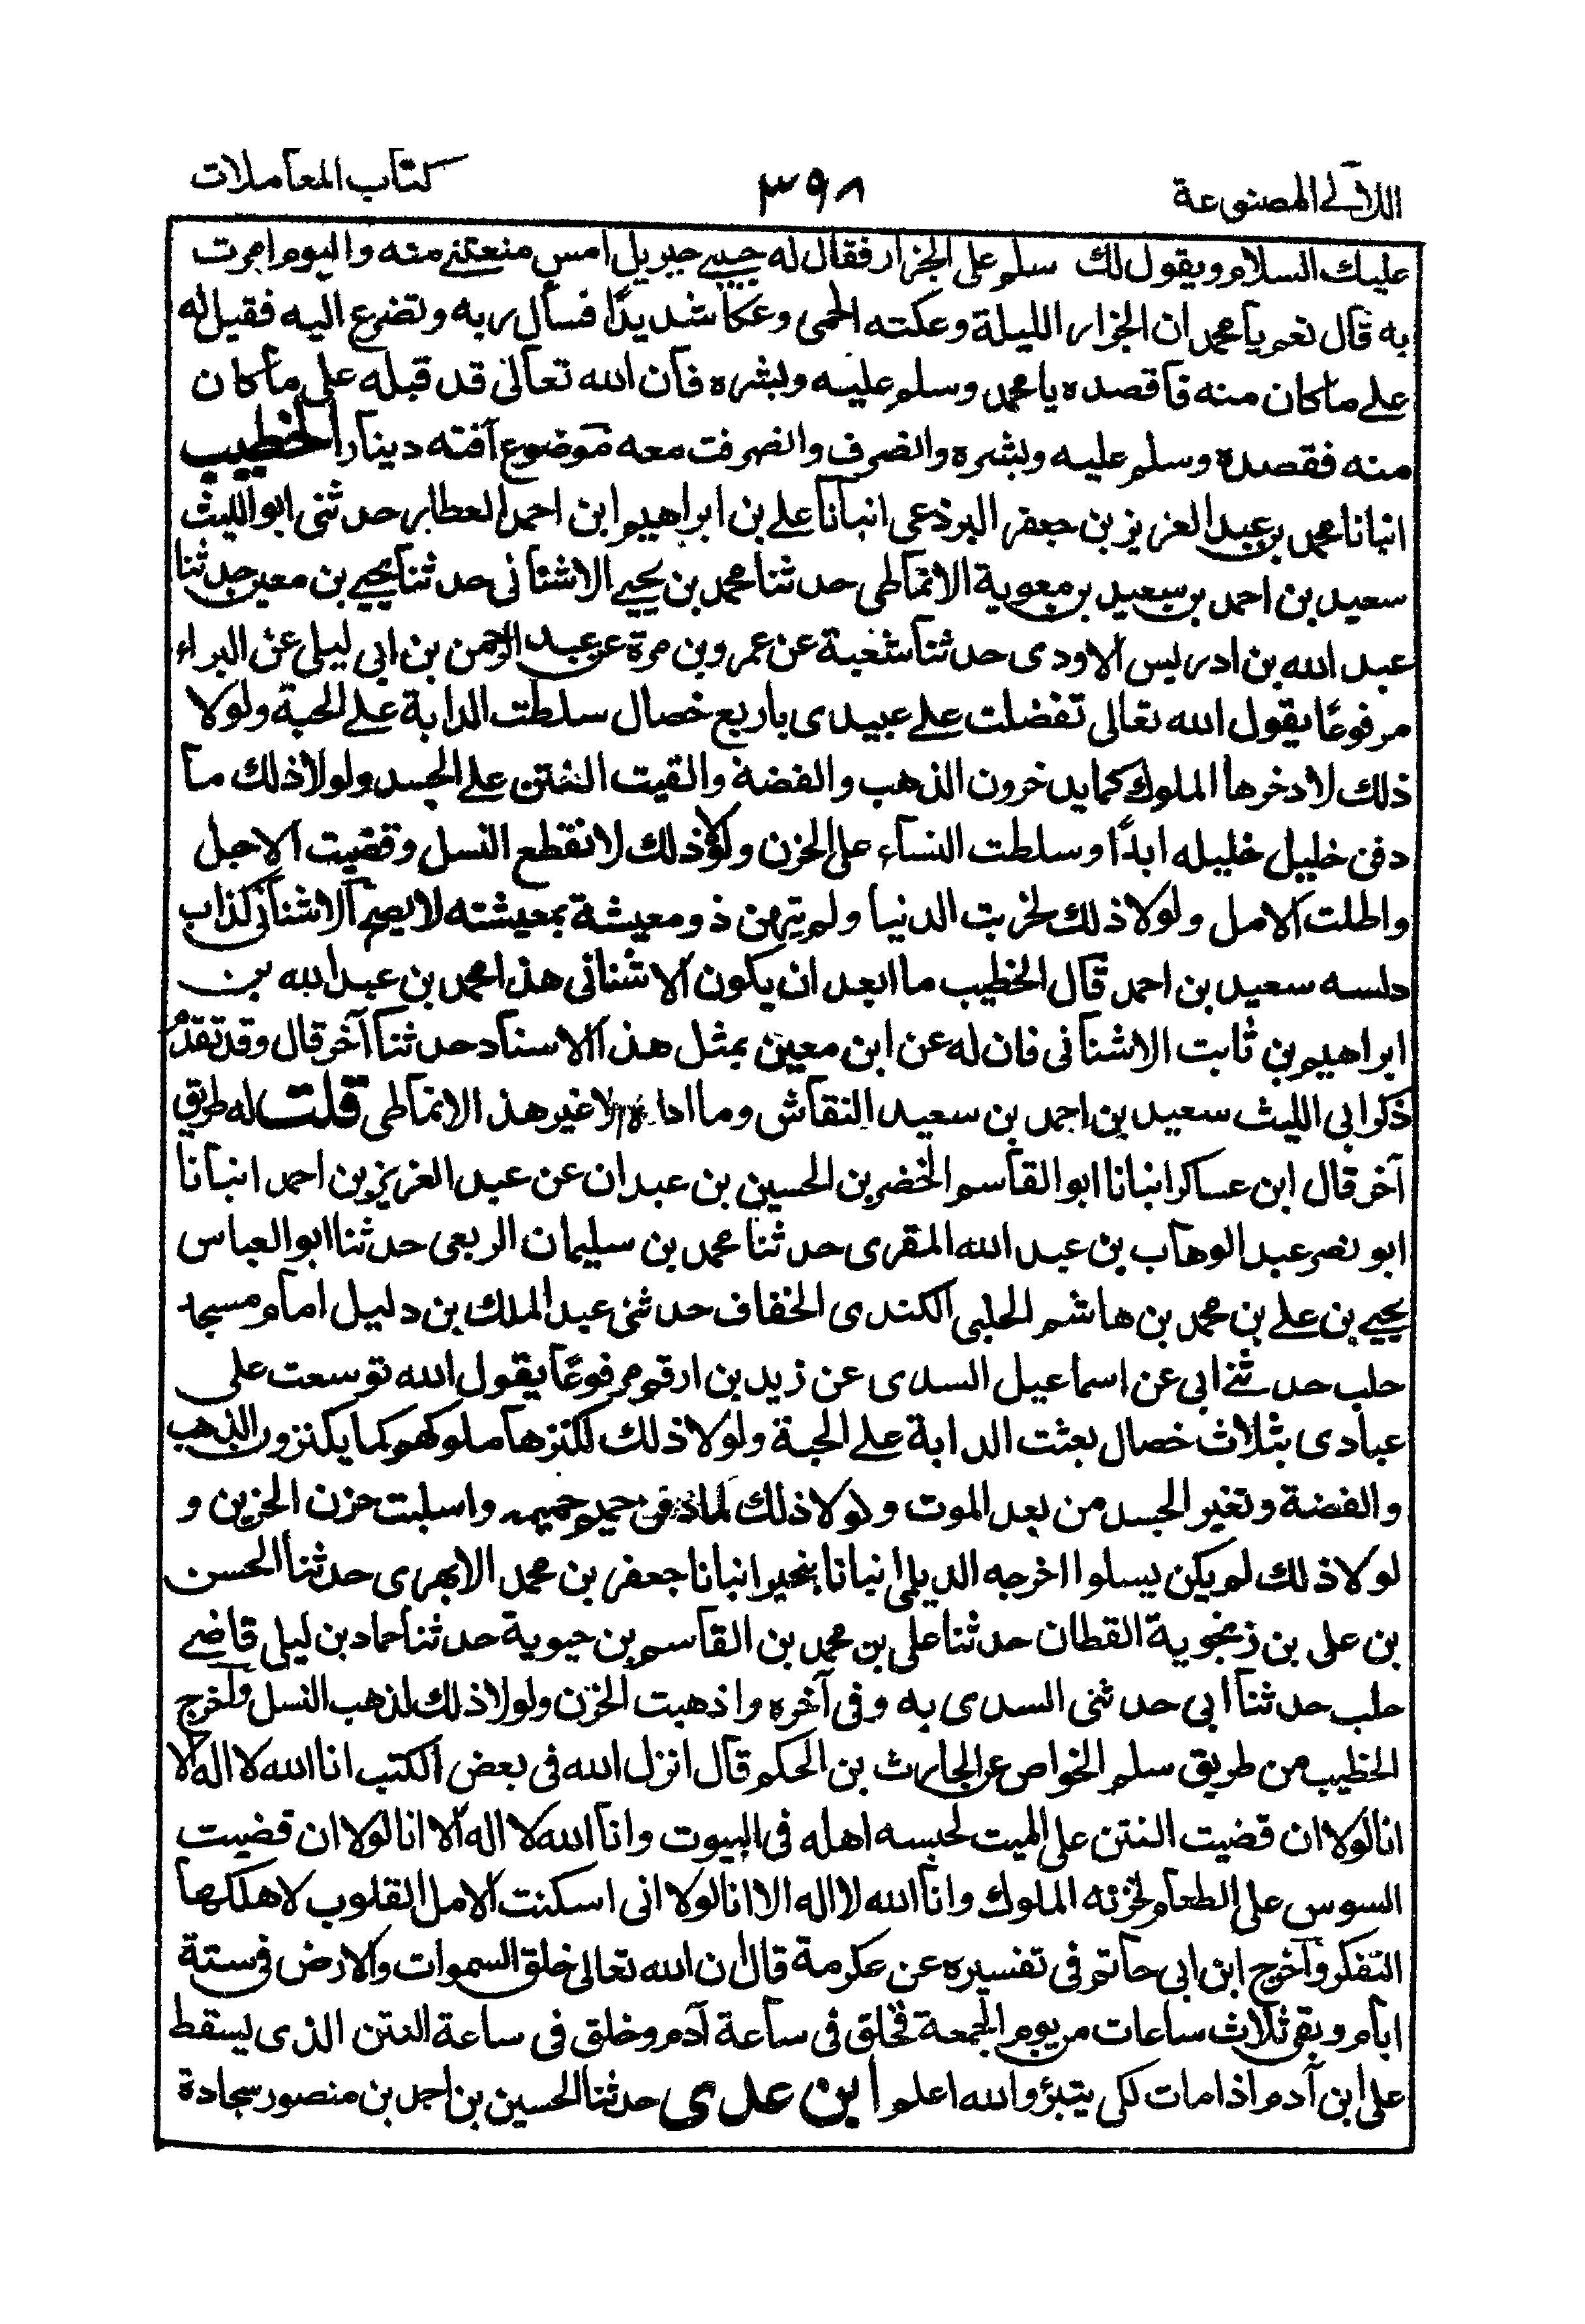 اللآلے المصنوعة
٣٩٨
كتاب المعاملات
عليك السلام ويقول لك سلم على الجزار فقال له حبيبے جبريل امس منعتنے منه واليوم امرت
به قال نعم يا محمد ان الجزار الليلة وعكته الحمى وعكا شديدًا فسأل ربه وتضرع اليه فقيل له
علے ما كان منه فاقصده يا محمد وسلم عليه وبشره فان الله تعالى قد قبله على ما كان
منه فقصده وسلم عليه وبشره وانصرف وانصرفت معه موضوع آفته دينار الخطيب
انبانا محمد بن عبد العزيز بن جعفر البرذعى انبانا علے بن ابراهيم ابن احمد العطار حدثنى ابو الليث
سعيد بن احمد بن سعيد بن معوية الانماطى حدثنا محمد بن يحيے الاشنانى حدثنا يحيے بن معين حدثنا
عبد الله بن ادريس الاودى حدثنا شعبة عن عمرو بن مرة عن عبد الرحمن بن ابى ليلى عن البراء
مرفوعًا يقول الله تعالى تفضلت علے عبيدى باربع خصال سلطت الدابة علے الحبة ولولا
ذلك لادخرها الملوك كما يدخرون الذهب والفضة والقيت النتن علے الجسد ولولا ذلك ما
دفن خليل خليله ابدًا وسلطت النساء على الحزن ولولا ذلك لانقطع النسل وقضيت الاجل
واطلت الامل ولولا ذلك لخربت الدنيا ولم يتهن ذو معيشة بمعيشته لا يصح الاشنانى كذاب
دلسه سعيد بن احمد قال الخطيب ما ابعد ان يكون الاشنانى هذا محمد بن عبد الله بن
ابراهيم بن ثابت الاشنانى فان له عن ابن معين بمثل هذا الاسناد حدثنا آخر قال وقد تقدم
ذكر ابى الليث سعيد بن احمد بن سعيد النقاش وما اداه الا غير هذا الانماطى قلت له طريق
آخر قال ابن عساكر انبانا ابو القاسم الخضر بن الحسين بن عبدان عن عبد العزيز بن احمد انبانا
ابو نصر عبد الوهاب بن عبد الله المقرى حدثنا محمد بن سليمان الربعى حدثنا ابو العباس
يحيے بن علے بن محمد بن هاشم الحلبى الكندى الخفاف حدثنى عبد الملك بن دليل امام مسجد
حلب حدثنے ابى عن اسماعيل السدى عن زيد بن ارقم مرفوعًا يقول الله توسعت على
عبادى بثلاث خصال بعثت الدابة علے الحبة ولولا ذلك لكنزها ملوكهم كما يكنزون الذهب
والفضة وتغير الجسد من بعد الموت ولولا ذلك لما دفن حميم حميمه واسلبت حزن الحزين و
لولا ذلك لم يكن يسلوا اخرجه الديلمى انبانا بنحير انبانا جعفر بن محمد الابهرى حدثنا الحسن
بن على بن زنجوية القطان حدثنا على بن محمد بن القاسم بن حيوية حدثنا حماد بن ليلى قاضے
حلب حدثنا ابى حدثنى السدى به وفى آخره واذهبت الحزن ولولا ذلك لذهب النسل واخرج
الخطيب من طريق سلم الخواص عن الحارث بن الحكم قال انزل الله فى بعض الكتب انا الله لا اله الا
انا لولا ان قضيت النتن على الميت لحبسه اهله فى البيوت وانا الله لا اله الا انا لولا ان قضيت
السوس على الطعام لخزنه الملوك وانا الله لا اله الا انا لولا انى اسكنت الامل القلوب لاهلكها
التفكر واخرج ابن ابى حاتم فى تفسيره عن عكرمة قال ان الله تعالى خلق السموات والارض فى ستة
ايام وبقى ثلاث ساعات من يوم الجمعة فخلق فى ساعة آدم وخلق فى ساعة النتن الذى يسقط
على ابن آدم اذا مات لكى يتبرؤ والله اعلم ابن عدى حدثنا الحسين بن احمد بن منصور سجادة